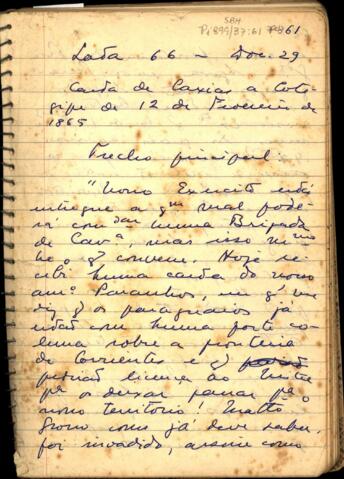 SBH
Pi 899/37:61 P61
Lata 66 - Doc. 29
Carta de Caxias a Cote-
gipe de 12 de Fevereiro de
1865
Trecho principal:
"Nosso Exercito está
entregue a qm mal pode-
rá comdar huma Brigada
de Cava, mas isso mmo
he o q convem. Hoje re-
cibi huma carta do nosso
amo Paranhos, em q me
diz q os paraguaios já
estão com huma forte co-
lumna sobre a fronteira
de Corrientes e q
pedirão licença ao Mitre
pa os deixar passar pa o
nosso territorio! Matto
Grosso como já deve saber,
foi invadido, assim como